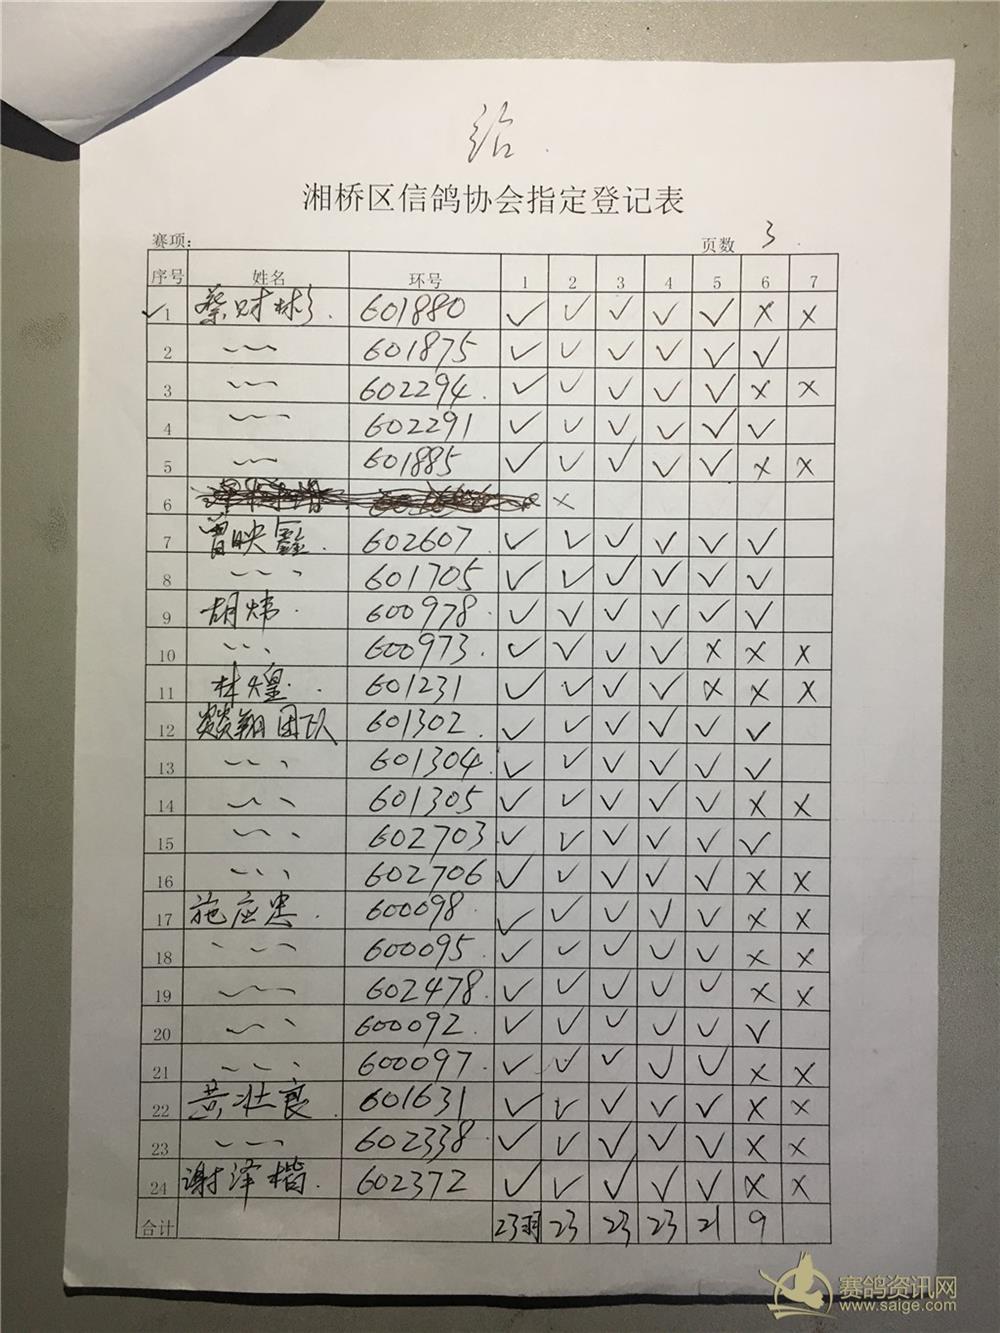 给
湘桥区信鸽协会指定登记表
赛项: 页数 3
序号 姓名 环号 1 2 3 4 5 6 7
✓1 蔡财彬 601880 ✓ ✓ ✓ ✓ ✓ × ×
2 〃 601875 ✓ ✓ ✓ ✓ ✓ ✓
3 〃 602294 ✓ ✓ ✓ ✓ ✓ × ×
4 〃 602291 ✓ ✓ ✓ ✓ ✓ ✓
5 〃 601885 ✓ ✓ ✓ ✓ ✓ × ×
6 ×
7 曾映鑫 602607 ✓ ✓ ✓ ✓ ✓ ✓
8 〃 601705 ✓ ✓ ✓ ✓ ✓ ✓
9 胡炜 600978 ✓ ✓ ✓ ✓ ✓ ✓
10 〃 600973 ✓ ✓ ✓ ✓ × × ×
11 林煌 601231 ✓ ✓ ✓ ✓ × × ×
12 燚翔团队 601302 ✓ ✓ ✓ ✓ ✓ ✓
13 〃 601304 ✓ ✓ ✓ ✓ ✓ ✓
14 〃 601305 ✓ ✓ ✓ ✓ ✓ × ×
15 〃 602703 ✓ ✓ ✓ ✓ ✓ ✓
16 〃 602706 ✓ ✓ ✓ ✓ ✓ × ×
17 施应忠 600098 ✓ ✓ ✓ ✓ ✓ × ×
18 〃 600095 ✓ ✓ ✓ ✓ ✓ × ×
19 〃 602478 ✓ ✓ ✓ ✓ ✓ × ×
20 〃 600092 ✓ ✓ ✓ ✓ ✓ ✓
21 〃 600097 ✓ ✓ ✓ ✓ ✓ × ×
22 黄壮良 601631 ✓ ✓ ✓ ✓ ✓ × ×
23 〃 602338 ✓ ✓ ✓ ✓ ✓ × ×
24 谢泽楷 602372 ✓ ✓ ✓ ✓ ✓ × ×
合计 23羽 23 23 23 21 9
赛鸽资讯网
www.saige.com